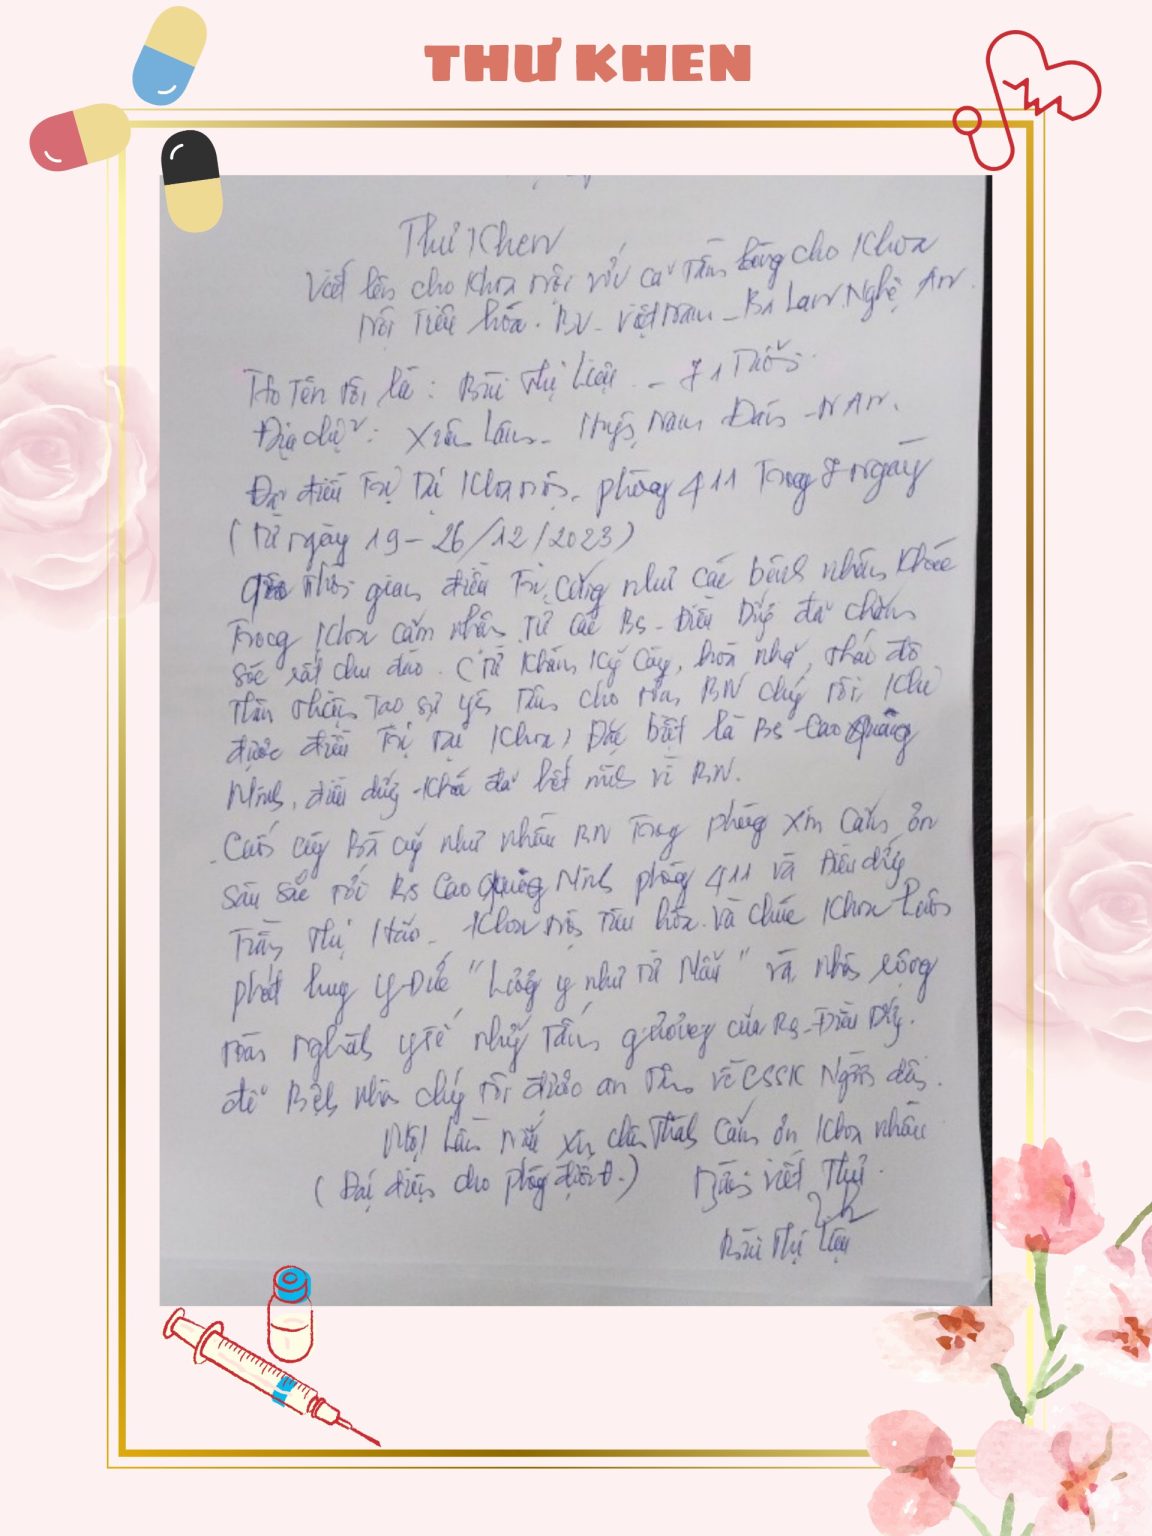 THƯ KHEN
Thư Khen
Viết lên cho Khoa nội với cả tấm lòng cho Khoa
Nội Tiêu hóa. BV - Việt Nam - Ba Lan. Nghệ An.
Họ Tên tôi là: Bùi Thị Liệu - 71 Tuổi
Địa chỉ: Xuân Lâm - Huyện Nam Đàn - N An.
Đã điều Trị Tại Khoa nội, phòng 411 Trong 8 ngày
(Từ ngày 19 - 26/12/2023)
Qua Thời gian điều Trị cũng như các bệnh nhân Khác
Trong Khoa cảm nhận Từ các BS - Điều Dưỡng đã chăm
sóc rất chu đáo. (Từ Khám Kỹ Càng, hòa nhã, thái độ
thân thiện Tạo sự yên Tâm cho BN chúng tôi Khi
được điều Trị tại Khoa) Đặc biệt là BS Cao Quảng
Ninh, điều dưỡng Khoa đã hết mình vì BN.
Cuối cùng Bà cũng như nhiều BN Trong phòng xin cảm ơn
sâu sắc tới BS Cao Quảng Ninh phòng 411 và Điều dưỡng
Trần Thị Hảo - Khoa nội Tiêu hóa. Và chúc Khoa Luôn
phát huy Y Đức "Lương y như Từ Mẫu" và nhân rộng
toàn nghành y tế những Tấm gương của BS - Điều Dưỡng.
để Bệnh nhân chúng tôi được an Tâm về CSSK Người dân.
Một Lần nữa xin chân Thành Cảm ơn Khoa nhiều
(Đại diện cho phòng điều Trị.) Người viết Thư
Bùi Thị Liệu